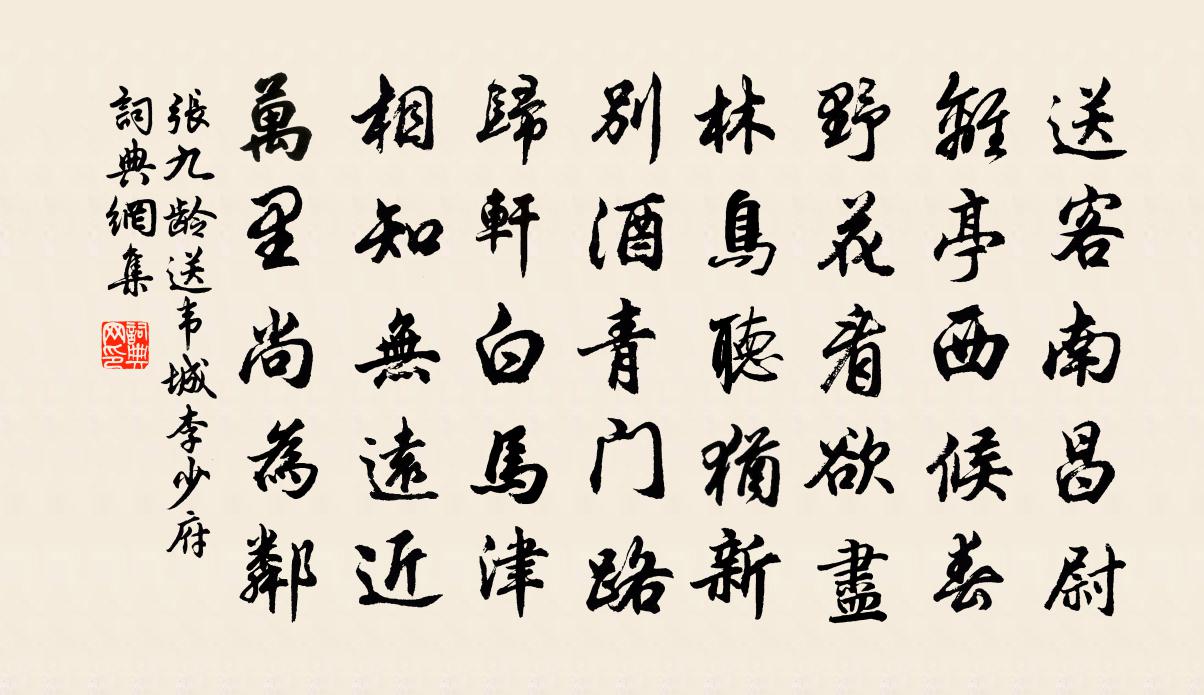 送客南昌尉
離亭西候春
野花看欲盡
林鳥聽猶新
別酒青门路
歸軒白馬津
相知無遠近
萬里尚為鄰
張九龄送韦城李少府
詞典網集
詞典网印